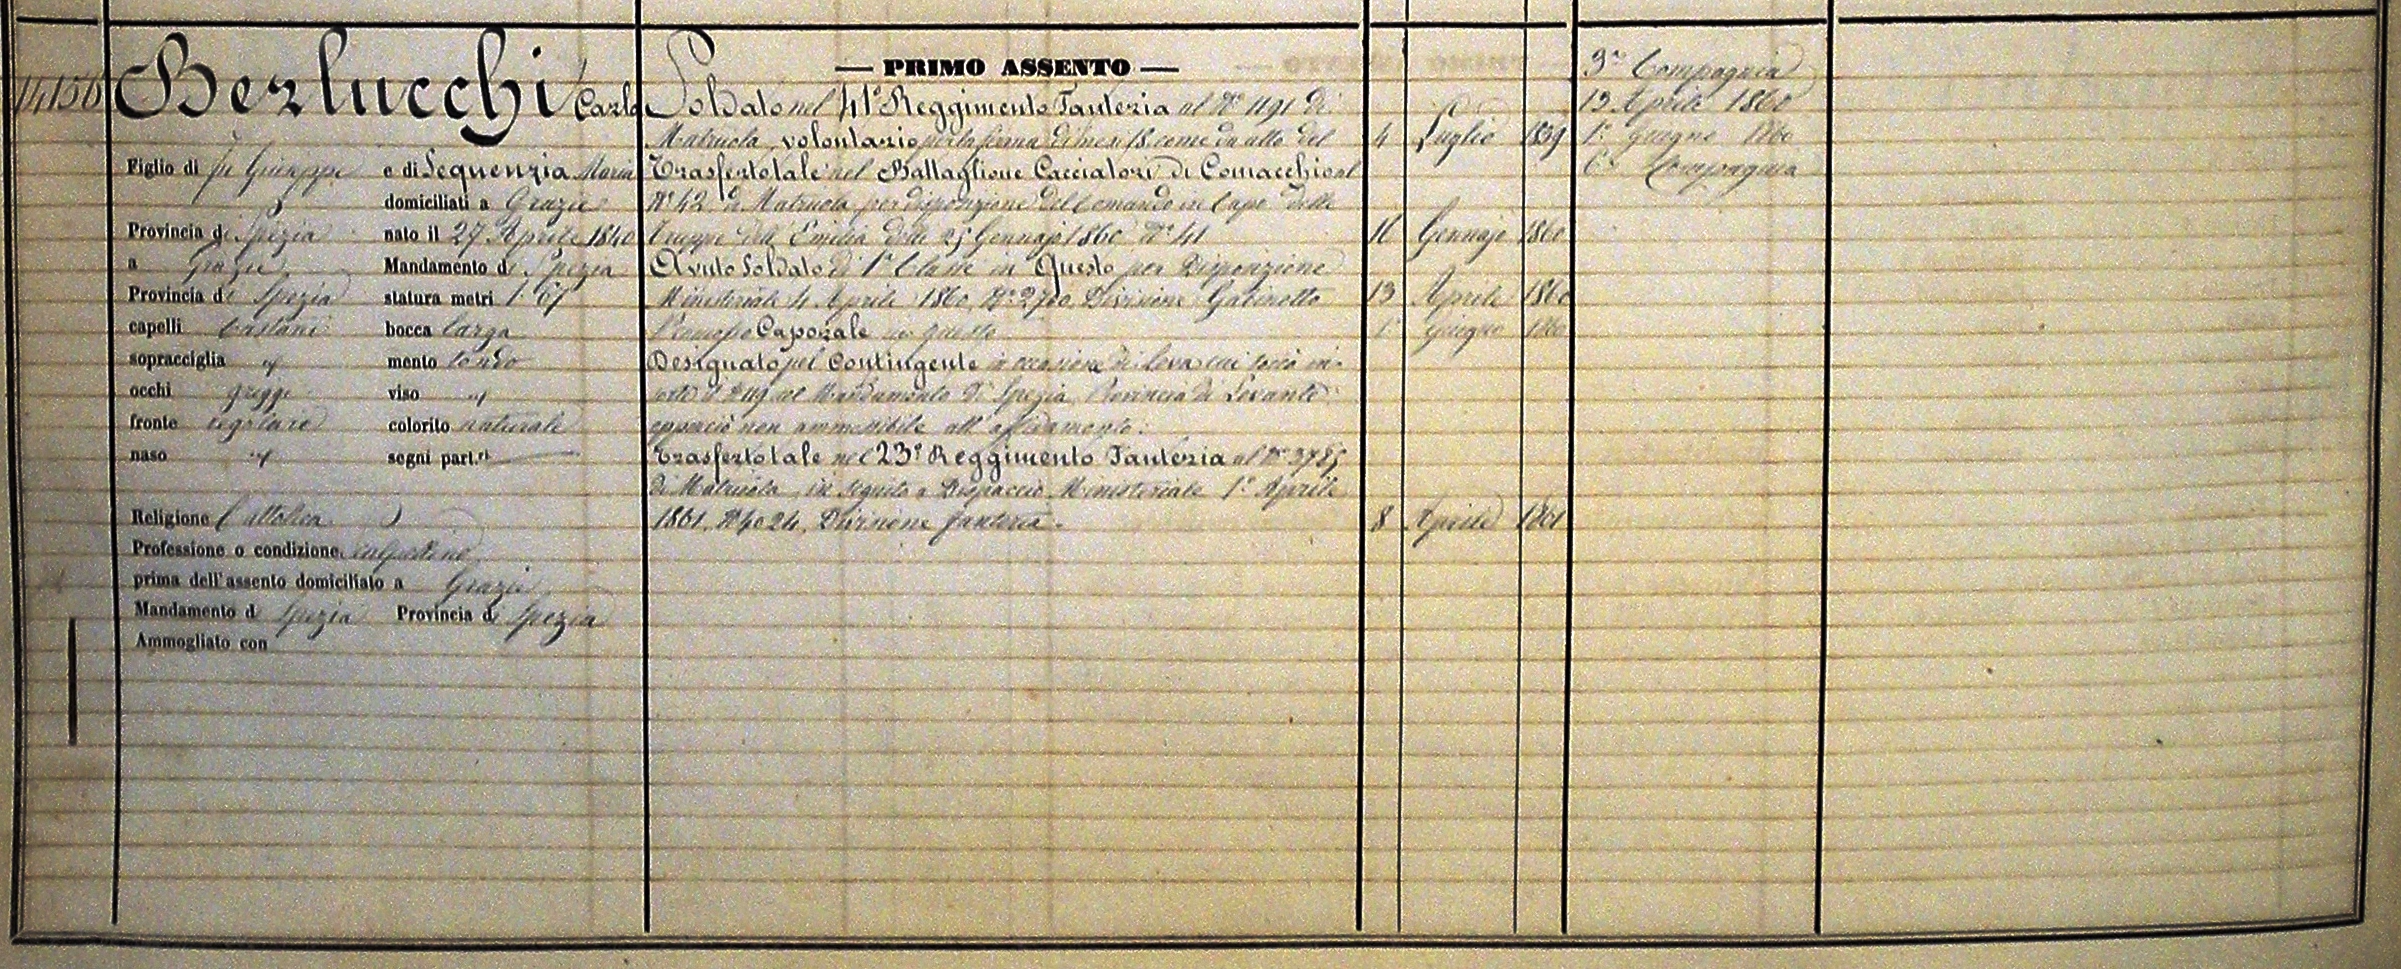 14156
Berlucchi Carlo
Figlio di fu Giuseppe e di Sequenzia Maria
domiciliati a Grazie
Provincia di Spezia nato il 27 Aprile 1840
a Grazie Mandamento di Spezia
Provincia di Spezia statura metri 1. 67
capelli Castani bocca larga
sopracciglia mento tondo
occhi griggi viso
fronte regolare colorito naturale
naso segni part.ri
Religione Cattolica
Professione o condizione scalpellino
prima dell'assento domiciliato a Grazie
Mandamento di Spezia Provincia di Spezia
Ammogliato con
— PRIMO ASSENTO —
Soldato nel 41° Reggimento Fanteria al N° 1191 di
Matricola, volontario per la ferma di mesi 18 come da atto del 4 Luglio 1859
Trasferto tale nel Battaglione Cacciatori di Comacchio al
N° 42 di Matricola per disposizione del Comando in Capo delle
Truppe dell' Emilia delli 25 Gennajo 1860 N° 41 16 Gennajo 1860
Avuto Soldato di 1a Classe in Questo per Disposizione
Ministeriale 4 Aprile 1860, N° 2700, Divisione Gabinetto 13 Aprile 1860
Promosso Caporale in questo 1° Giugno 1860
Designato pel Contingente in occasione di leva cui toccò in
sorte il N° 119 nel Mandamento di Spezia, Provincia di Levante
epperciò non ammessibile all' affidamento.
Trasferto tale nel 23° Reggimento Fanteria al N° 3785
di Matricola, in seguito a Dispaccio Ministeriale 1° Aprile
1861, N° 4024, Divisione fanteria. 8 Aprile 1861
3a Compagnia
13 Aprile 1860
1° Giugno 1860
6a Compagnia